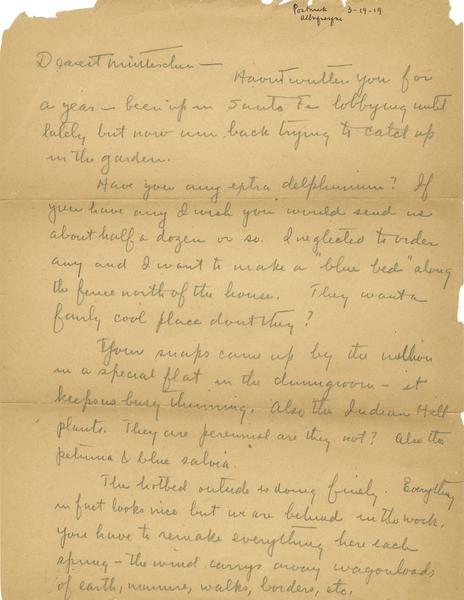 Postmark 3-19-19
Albuquerque
Dearest Mütterchen —
Havent written you for
a year — been up in Santa Fe lobbying until
lately but now am back trying to catch up
in the garden.
Have you any extra delphinium? If
you have any I wish you would send us
about half a dozen or so. I neglected to order
any and I want to make a "blue bed" along
the fence north of the house. They want a
fairly cool place dont they?
Your snaps came up by the million
in a special flat in the diningroom — it
keeps us busy thinning. Also the Indian Hill
plants. They are perennial are they not? Also the
petunia & blue salvia.
The hotbed outside is doing finely. Everything
in fact looks nice but we are behind in the work.
You have to remake everything here each
spring — the wind carrys away wagonloads
of earth, manure, walks, borders, etc.